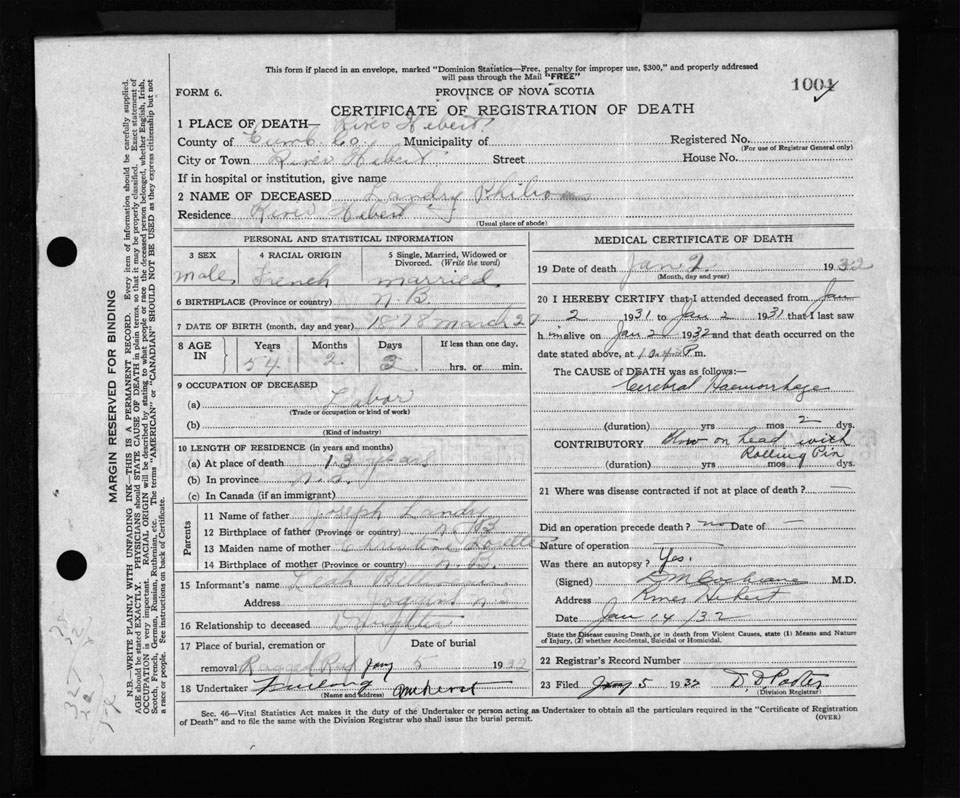 This form if placed in an envelope, marked "Dominion Statistics—Free, penalty for improper use, $300," and properly addressed
will pass through the Mail "FREE"
FORM 6.
PROVINCE OF NOVA SCOTIA
1001
CERTIFICATE OF REGISTRATION OF DEATH
1 PLACE OF DEATH— River Hebert
County of Cumb. Co. Municipality of Registered No.
(For use of Registrar General only)
City or Town River Hebert Street House No.
If in hospital or institution, give name
2 NAME OF DECEASED Landry
Residence River Hebert
(Usual place of abode)
PERSONAL AND STATISTICAL INFORMATION
3 SEX 4 RACIAL ORIGIN 5 Single, Married, Widowed or
Divorced. (Write the word)
male French married
6 BIRTHPLACE (Province or country) N.B.
7 DATE OF BIRTH (month, day and year) 1878 March 27
8 AGE IN Years Months Days If less than one day,
54 2 hrs. or min.
9 OCCUPATION OF DECEASED
(a) Labor
(Trade or occupation or kind of work)
(b)
(Kind of industry)
10 LENGTH OF RESIDENCE (in years and months)
(a) At place of death 13 years
(b) In province N.S.
(c) In Canada (if an immigrant)
Parents
11 Name of father Joseph Landry
12 Birthplace of father (Province or country) N B
13 Maiden name of mother
14 Birthplace of mother (Province or country) N.B.
15 Informant's name
Address
16 Relationship to deceased Daughter
17 Place of burial, cremation or Date of burial
removal Jany 5 1932
18 Undertaker Amherst
(Name and address)
MEDICAL CERTIFICATE OF DEATH
19 Date of death Jan 2. 1932
(Month, day and year)
20 I HEREBY CERTIFY that I attended deceased from Jan
2 1931 to Jan 2 1931 that I last saw
him alive on Jan 2 1932 and that death occurred on the
date stated above, at P m.
The CAUSE of DEATH was as follows:—
Cerebral Haemorrhage
(duration) yrs mos 2 dys.
CONTRIBUTORY Blow on head with
Rolling Pin
(duration) yrs mos dys.
21 Where was disease contracted if not at place of death?
Did an operation precede death? no Date of —
Nature of operation
Was there an autopsy? Yes.
(Signed) D M Cochrane M.D.
Address River Hebert
Date Jan 14/32
State the Disease causing Death, or in death from Violent Causes, state (1) Means and Nature
of Injury, (2) whether Accidental, Suicidal or Homicidal.
22 Registrar's Record Number
23 Filed Jany 5 1932 D. D. Porter
(Division Registrar)
Sec. 46—Vital Statistics Act makes it the duty of the Undertaker or person acting as Undertaker to obtain all the particulars required in the "Certificate of Registration
of Death" and to file the same with the Division Registrar who shall issue the burial permit. (OVER)
MARGIN RESERVED FOR BINDING
N.B.—WRITE PLAINLY WITH UNFADING INK—THIS IS A PERMANENT RECORD. Every item of information should be carefully supplied.
AGE should be stated EXACTLY. PHYSICIANS should state CAUSE OF DEATH in plain terms, so that it may be properly classified. Exact statement of
OCCUPATION is very important. RACIAL ORIGIN will be described by stating to what people or race the deceased person belonged, whether English, Irish,
Scotch, French, German, Russian, Ruthenian, etc. The terms "AMERICAN" or "CANADIAN" SHOULD NOT BE USED as they express citizenship but not
a race or people. See instructions on back of Certificate.